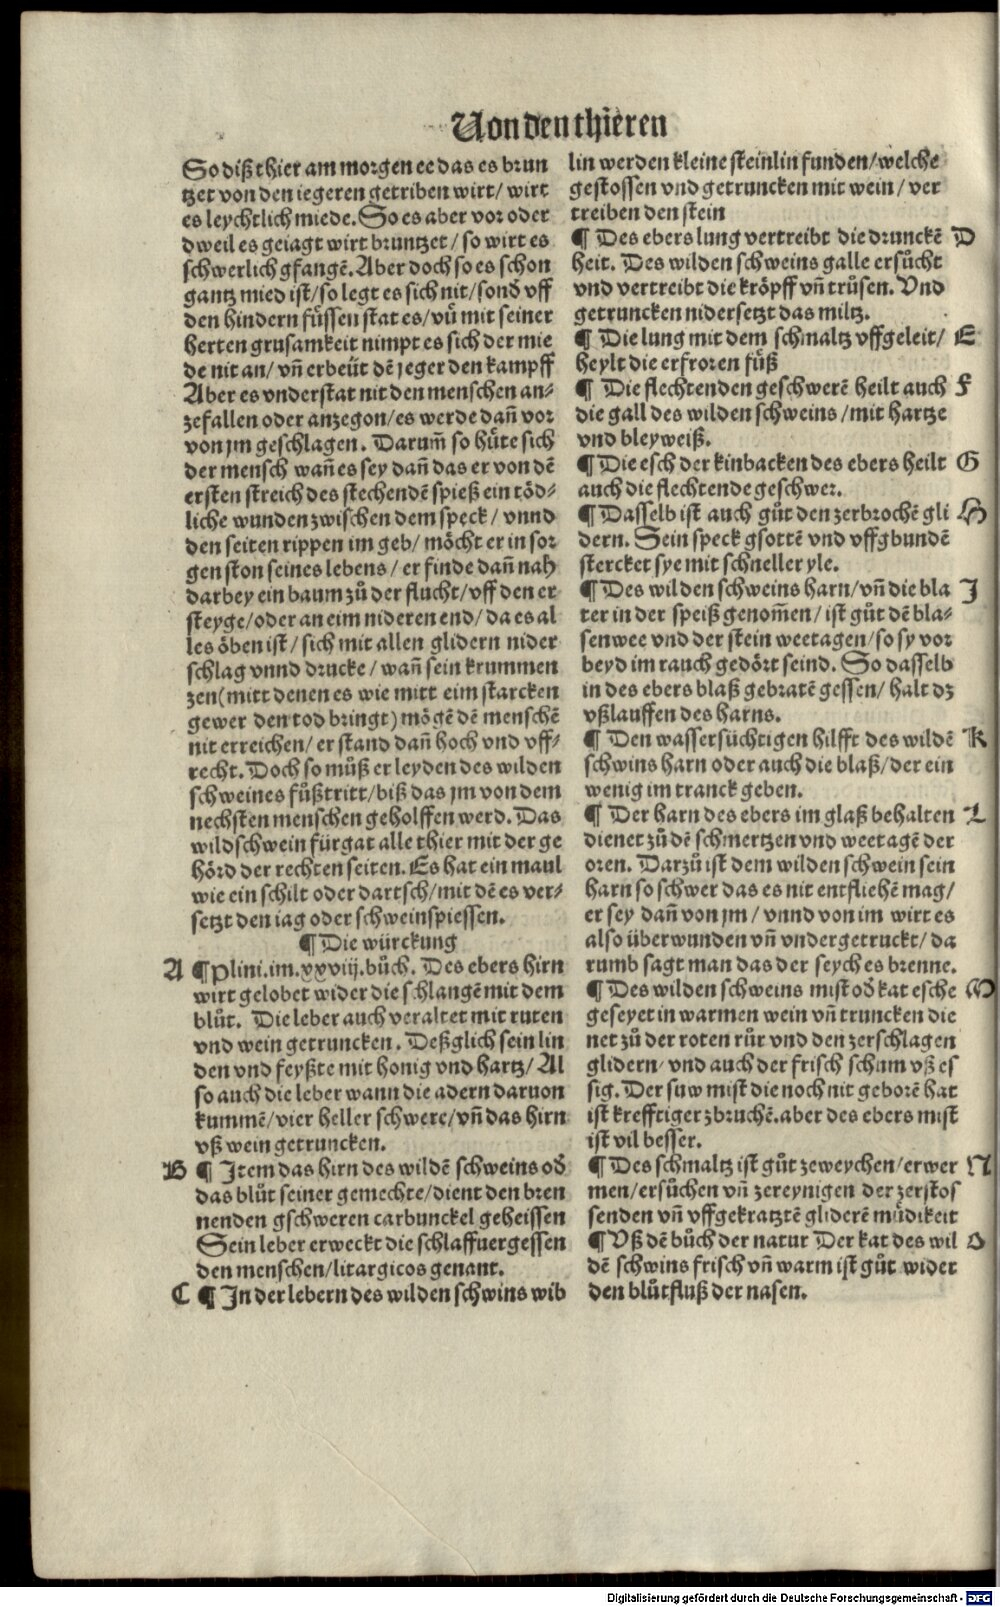 Von den thieren
So diß thier am morgen ee das es brun
tzet von den iegeren getriben wirt/ wirt
es leychtlich miede. So es aber vor oder
dweil es geiagt wirt bruntzet / so wirt es
schwerlich gfangē. Aber doch so es schon
gantz mied ist/ so legt es sich nit/ sonð vff
den hindern füssen stat es/ vn̄ mit seiner
herten grusamkeit nimpt es sich der mie
de nit an/ vn̄ erbeüt dē jeger den kampff
Aber es vnderstat nit den menschen an⸗
zefallen oder anzegon/ es werde dañ vor
von jm geschlagen. Darum̄ so hüte sich
der mensch wañ es sey dañ das er von dē
ersten streich des stechendē spieß ein töd⸗
liche wunden zwischen dem speck / vnnd
den seiten rippen im geb/ möcht er in sor
gen ston seines lebens / er finde dañ nah
darbey ein baum zů der flucht/ vff den er
steyge/ oder an eim nideren end/ da es al
les öben ist/ sich mit allen glidern nider
schlag vnnd drucke / wañ sein krummen
zen (mitt denen es wie mitt eim starcken
gewer den tod bringt) mögē dē menschē
nit erreichen/ er stand dañ hoch vnd vff⸗
recht. Doch so můß er leyden des wilden
schweines fůßtritt/ biß das jm von dem
nechsten menschen geholffen werd. Das
wildschwein fürgat alle thier mit der ge
hörd der rechten seiten. Es hat ein maul
wie ein schilt oder dartsch/ mit dē es ver⸗
setzt den iag oder schweinspiessen.
¶ Die würckung
A ¶ Plini. im. xxviij. bůch. Des ebers hirn
wirt gelobet wider die schlangē mit dem
blůt. Die leber auch veraltet mit ruten
vnd wein getruncken. Deßglich sein lin
den vnd feyßte mit honig vnd hartz/ Al
so auch die leber wann die adern daruon
kummē/ vier heller schwere/ vn̄ das hirn
vß wein getruncken.
B ¶ Item das hirn des wildē schweins oð
das blůt seiner gemechte/ dient den bren
nenden gschweren carbunckel geheissen
Sein leber erweckt die schlaffuergessen
den menschen/ litargicos genant.
C ¶ In der lebern des wilden schwins wib
lin werden kleine steinlin funden/ welche
gestossen vnd getruncken mit wein / ver
treiben den stein
¶ Des ebers lung vertreibt die drunckē D
heit. Des wilden schweins galle ersůcht
vnd vertreibt die kröpff vn̄ trůsen. Vnd
getruncken nidersetzt das miltz.
¶ Die lung mit dem schmaltz vffgeleit/ E
heylt die erfroren fůß
¶ Die flechtenden geschwerē heilt auch F
die gall des wilden schweins / mit hartze
vnd bleyweiß.
¶ Die esch der kinbacken des ebers heilt G
auch die flechtende geschwer.
¶ Dasselb ist auch gůt den zerbrochē gli H
dern. Sein speck gsottē vnd vffgbundē
stercket sye mit schneller yle.
¶ Des wilden schweins harn/ vn̄ die bla J
ter in der speiß genom̄en/ ist gůt dē bla⸗
senwee vnd der stein weetagen/ so sy vor
beyd im rauch gedört seind. So dasselb
in des ebers blaß gebratē gessen/ halt dz
vßlauffen des harns.
¶ Den wassersüchtigen hilfft des wildē K
schwins harn oder auch die blaß/ der ein
wenig im tranck geben.
¶ Der harn des ebers im glaß behalten L
dienet zů dē schmertzen vnd weetagē der
oren. Darzů ist dem wilden schwein sein
harn so schwer das es nit entfliehē mag/
er sey dañ von jm / vnnd von im wirt es
also überwunden vn̄ vndergetruckt/ da
rumb sagt man das der seych es brenne.
¶ Des wilden schweins mist oð kat esche M
geseyet in warmen wein vn̄ truncken die
net zů der roten růr vnd den zerschlagen
glidern/ vnd auch der frisch schum vß es
sig. Der suw mist die noch nit geborē hat
ist krefftiger zbruchē. aber des ebers mist
ist vil besser.
¶ Des schmaltz ist gůt zeweychen/ erwer N
men/ ersůchen vn̄ zereynigen der zerstos
senden vn̄ vffgekratztē gliderē můdikeit
¶ Vß dē bůch der natur Der kat des wil O
dē schwins frisch vn̄ warm ist gůt wider
den blůtfluß der nasen.
Digitalisierung gefördert durch die Deutsche Forschungsgemeinschaft - DFG